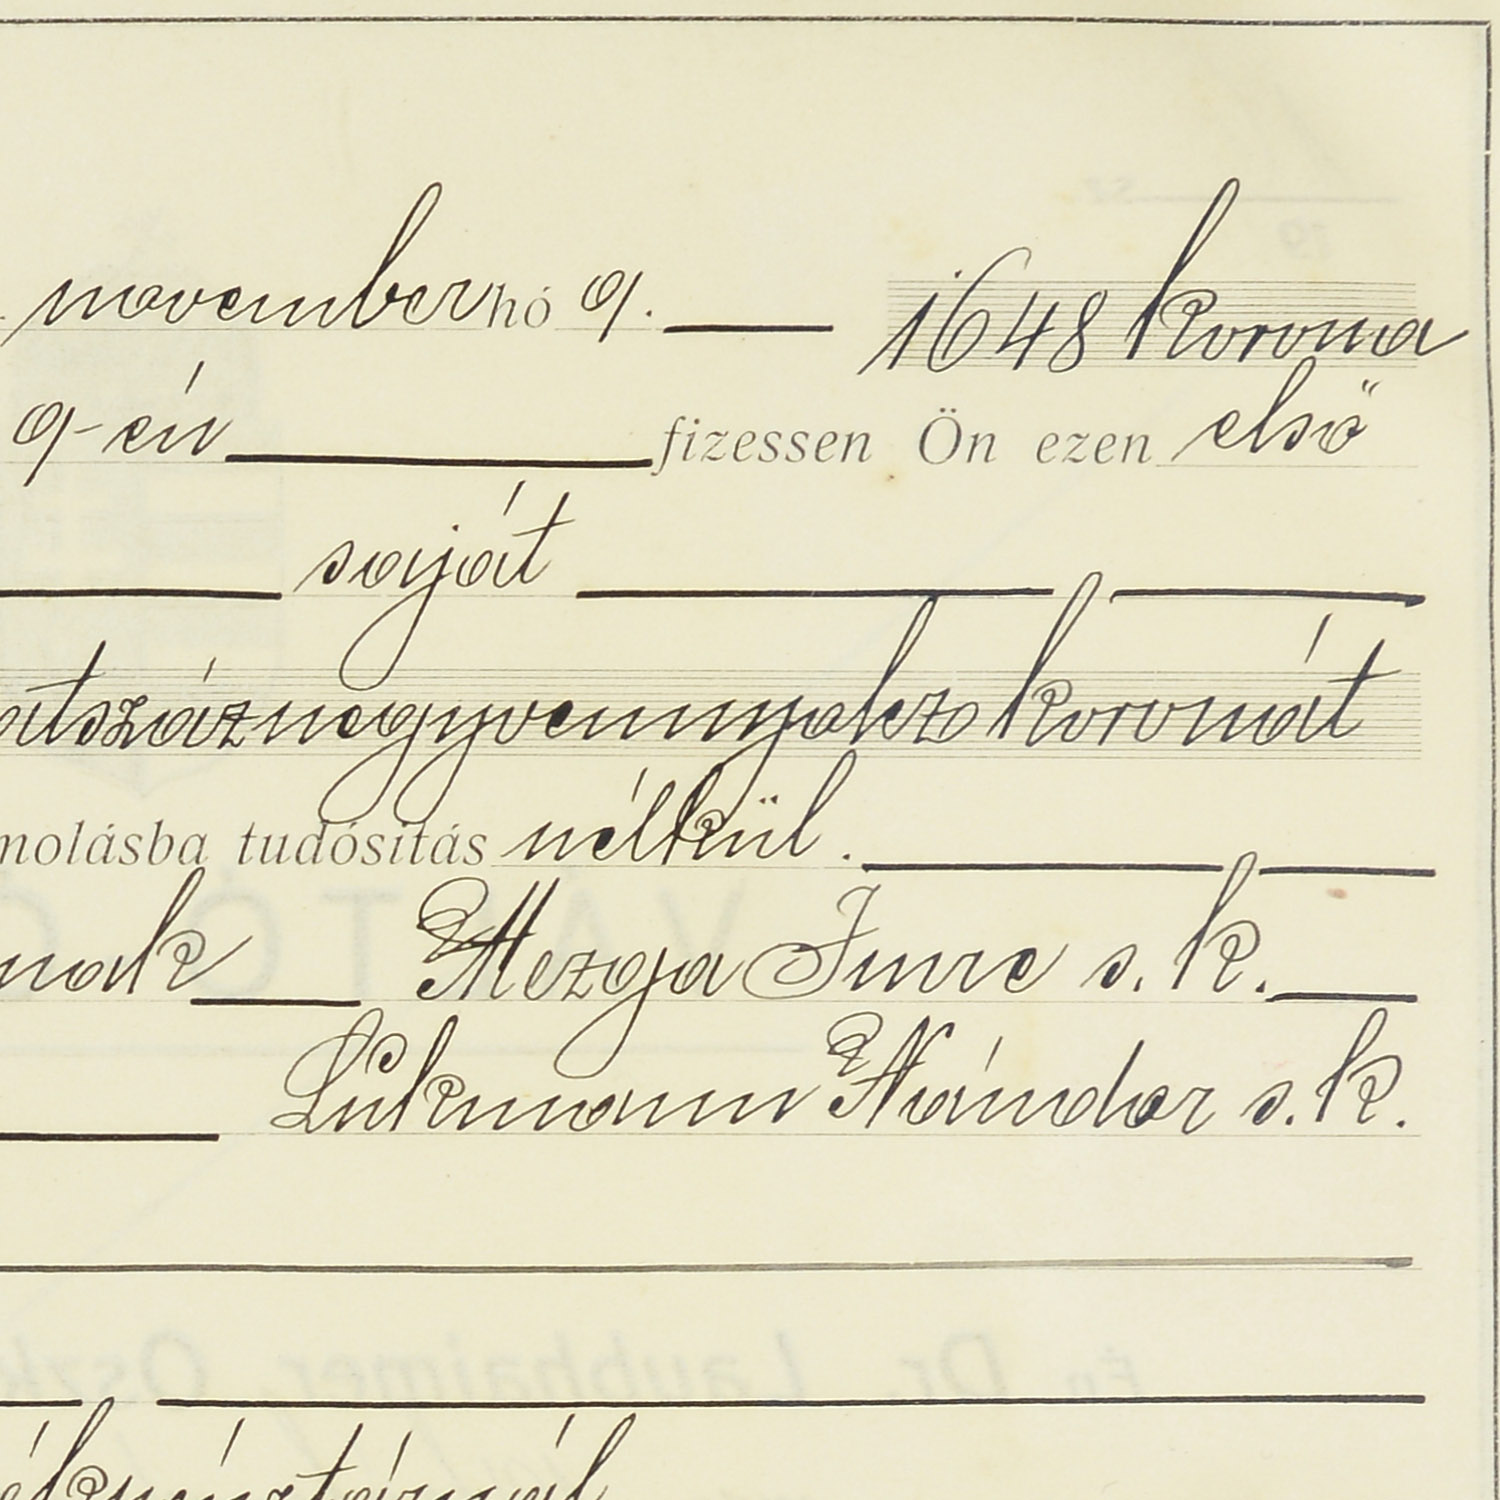 november hó 9. 1648 korona
9-én fizessen Ön ezen első
saját
atszáznegyvennyolcz koronát
molásba tudósítás nélkül.
nak Mezga Imre s. k.
Lukmann Nándor s. k.